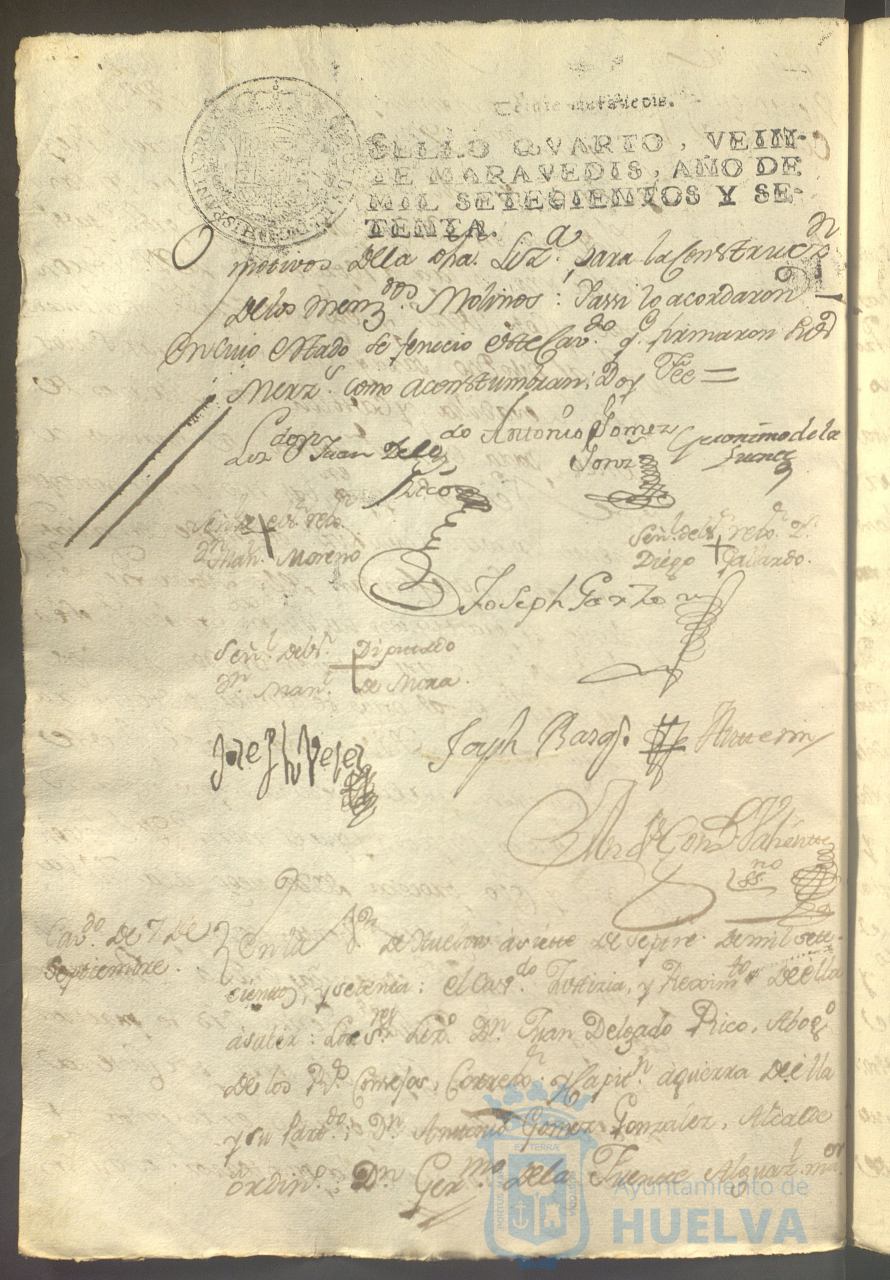 Veinte maravedis.
SELLO QVARTO, VEIN-
TE MARAVEDIS, AÑO DE
MIL SETECIENTOS Y SE-
TENTA.
motivos della dha. Lizª. para la Construcⁿ
de los Menzdos. Molinos: Y assi lo acordaron
en cuio estado se fenecio este Cavdo. q firmaron
Merzs. como acostumbran: Doy Fee =
Lizdo Dn Juan Delgdo Rico
Antonio Gomez Gonz
Geronimo de la Fuente
Señl. del Sr. rexor. Dn. Juan. Moreno
Señl. del Sr. rexor. Dn. Diego Gallardo.
Joseph Garzon
Señl. del Sr. Diputado
Dn. Manl. de Mora
Josefh Vejer
Joseph
Valiente
ssno
Cavdo. de 7 de
Septiembre.
En la Va. de Huelva a siete de Septre. de mil sete-
cientos, y setenta: el Cavdo. Justizia, y Reximto de ella
a saver: Los Sres. Lizdo. Dn. Juan Delgado Rico, Abogdo
de los Rs. Consejos, Corregor. y Capitn. a guerra de ella
y su Partdo.; Dn. Antonio Gomez Gonzalez, Alcalde
ordino.; Dn Germo. de la Fuente Alguazl. maor
Ayuntamiento de
HUELVA